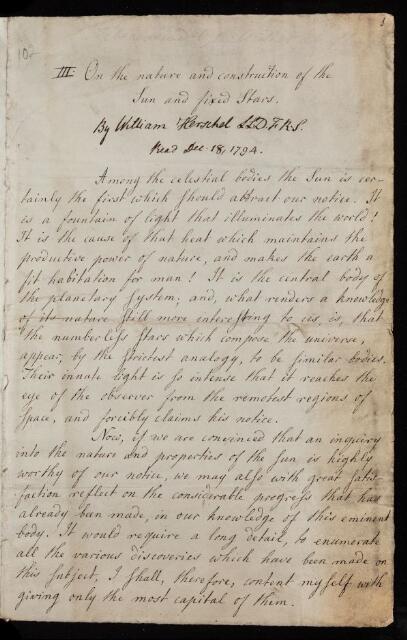 3
102
III. On the nature and construction of the
Sun and fixed Stars.
By William Herschel LLD F.R.S.
Read Dec. 18, 1794.
Among the celestial bodies the Sun is cer-
tainly the first which should attract our notice. It
is a fountain of light that illuminates the world!
It is the cause of that heat which maintains the
productive power of nature, and makes the earth a
fit habitation for man! It is the central body of
the planetary System; and, what renders a knowledge
of its nature still more interesting to us, is, that
the numberless stars which compose the universe,
appear, by the strictest analogy, to be similar bodies.
Their innate light is so intense that it reaches the
eye of the observer from the remotest regions of
space, and forcibly claims his notice.
Now, if we are convinced that an inquiry
into the nature and properties of the Sun is highly
worthy of our notice, we may also with great satis-
faction reflect on the considerable progress that has
already been made, in our knowledge of this eminent
body. It would require a long detail, to enumerate
all the various discoveries which have been made on
this subject, I shall, therefore, content myself with
giving only the most capital of them.